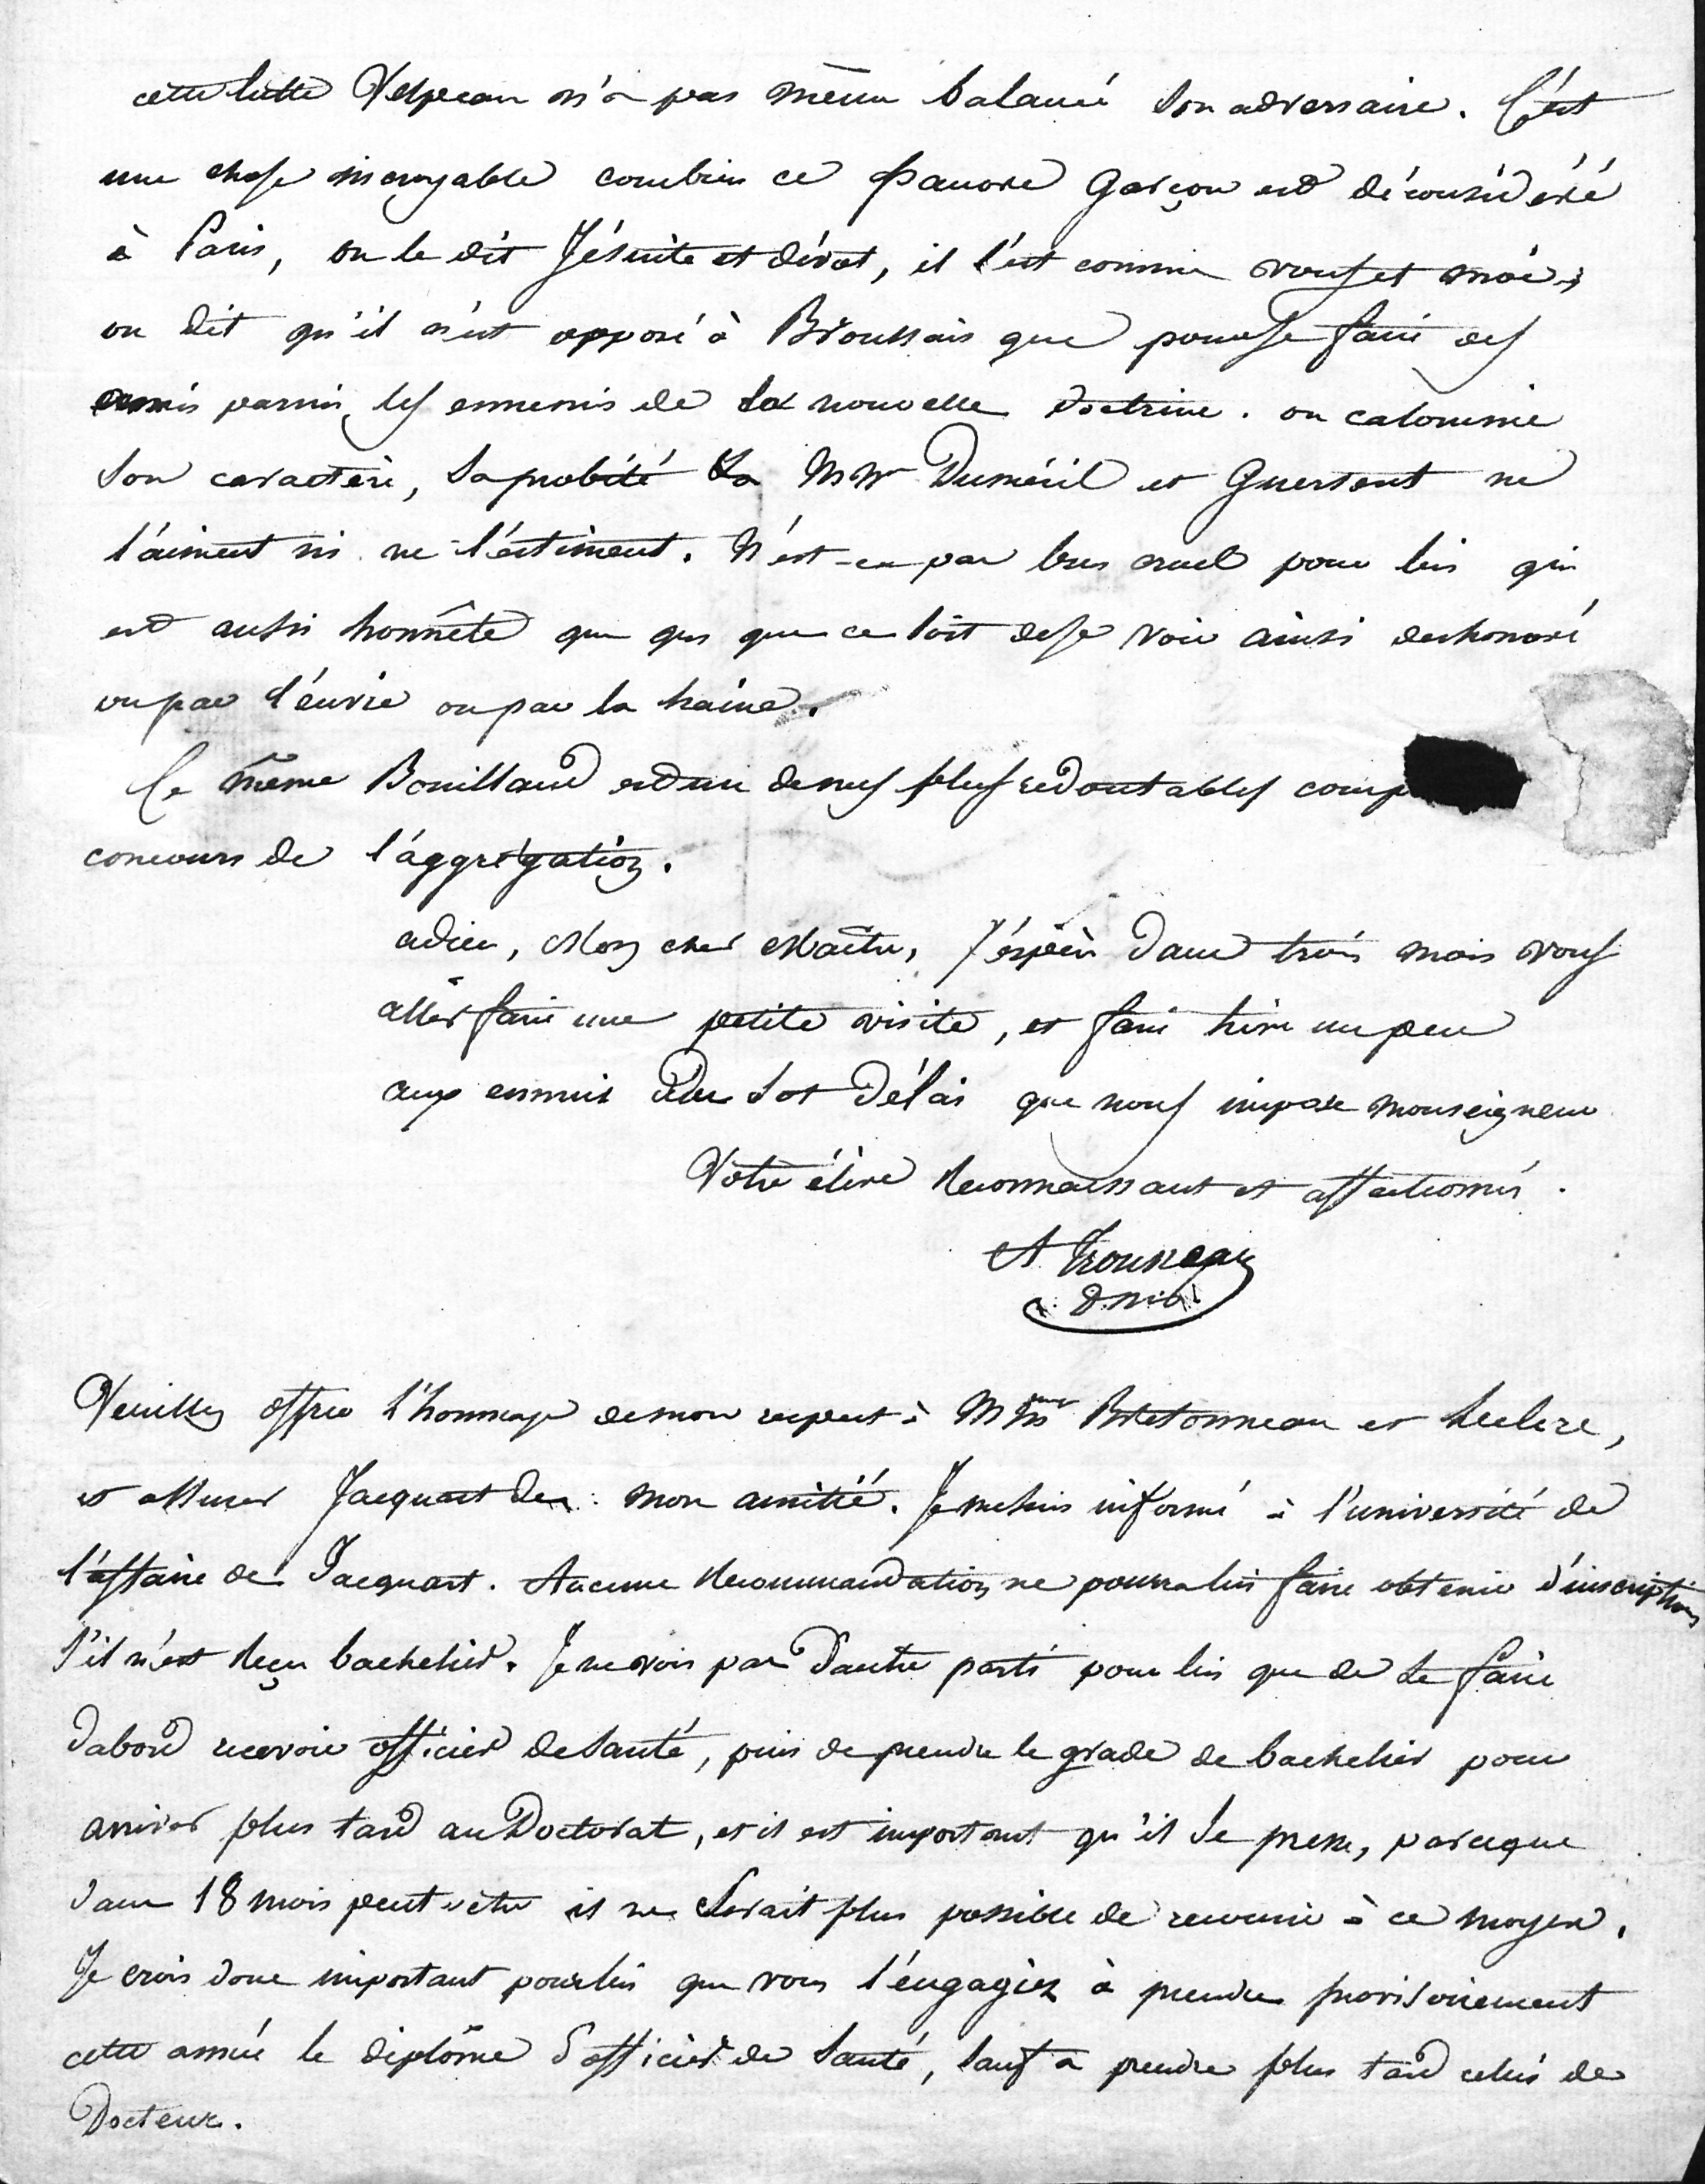 cette lutte Velpeau n'a pas même balancé son adversaire. C'est
une chose incroyable combien ce pauvre garçon est déconsidéré
à Paris, on le dit Jésuite et dévot, il l'est comme vous et moi;
on dit qu'il n'est opposé à Broussais que pour se faire des
amis parmi les ennemis de la nouvelle doctrine. on calomnie
son caractère, sa probité Mrs Duméril et Guersent ne
l'aiment ni ne l'estiment. N'est-ce pas bien cruel pour lui qui
est aussi honnête que qui que ce soit de se voir ainsi deshonoré
ou par l'envie ou par la haine.
Ce même Bouillaud est un de nos plus redoutables comp
concours de l'aggrégation.
adieu, Mon cher Maître, J'éspère dans trois mois vous
aller faire une petite visite, et faire trève un peu
aux ennuis du sot délai que nous impose monseigneur
Votre élève reconnaissant et affectionné.
A Trousseau
D.M.
Veuillez offrir l'hommage de mon respect à Mmes Bretonneau et Leclerc,
et assurer Jacquart de mon amitié. Je me suis informé à l'université de
l'affaire de Jacquart. Aucune recommandation ne pourra lui faire obtenir d'inscriptions
s'il n'est reçu bachelier. Je ne vois pas d'autre parti pour lui que de se faire
dabord recevoir officier de santé, puis de prendre le grade de bachelier pour
arriver plus tard au Doctorat, et il est important qu'il se presse, parceque
dans 18 mois peut-être il ne serait plus possible de revenir à ce moyen.
Je crois donc important pour lui que vous l'engagiez à prendre provisoirement
cette année le diplôme d'officier de santé, sauf a prendre plus tard celui de
Docteur.